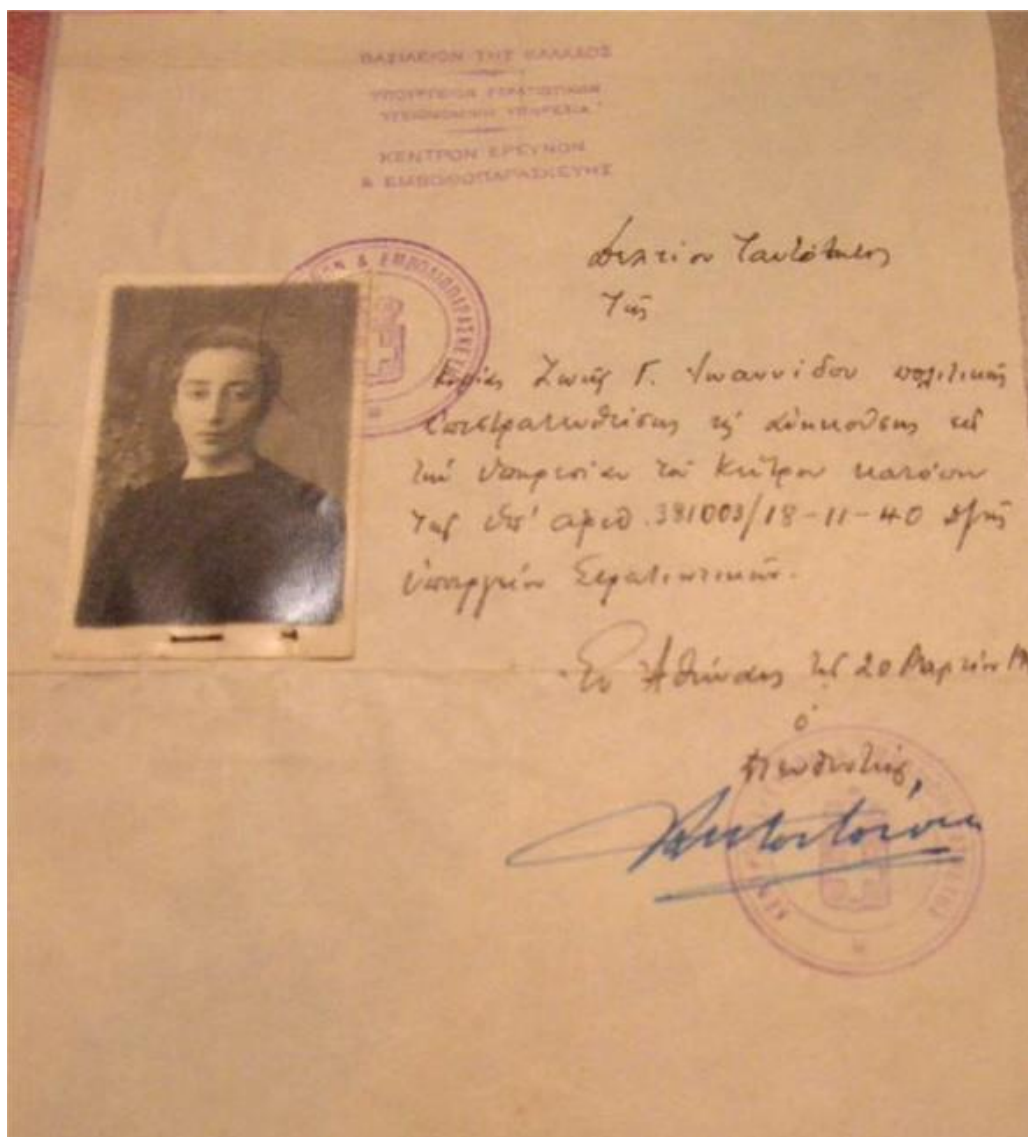 ΒΑΣΙΛΕΙΟΝ ΤΗΣ ΕΛΛΑΔΟΣ
ΥΠΟΥΡΓΕΙΟΝ ΣΤΡΑΤΙΩΤΙΚΩΝ
ΥΓΕΙΟΝΟΜΙΚΗ ΥΠΗΡΕΣΙΑ
ΚΕΝΤΡΟΝ ΕΡΕΥΝΩΝ
& ΕΜΒΟΛΙΟΠΑΡΑΣΚΕΥΗΣ
& ΕΜΒΟΛΙΟΠΑΡΑΣΚΕΥΗΣ
Δελτίον Ταυτότητος
Τῆς
Κυρίας Ζωῆς Γ. Ἰωαννίδου πολιτικῆς
ἐπιστρατευθείσης
τὴν ὑπηρεσίαν τοῦ Κέντρου κατόπιν
τῆς ὑπ' ἀριθ. 381003/18-11-40
Ὑπουργείου Στρατιωτικῶν.
Ἐν Ἀθήναις τῇ 20 Μαρτίου
ὁ
Διευθυντής